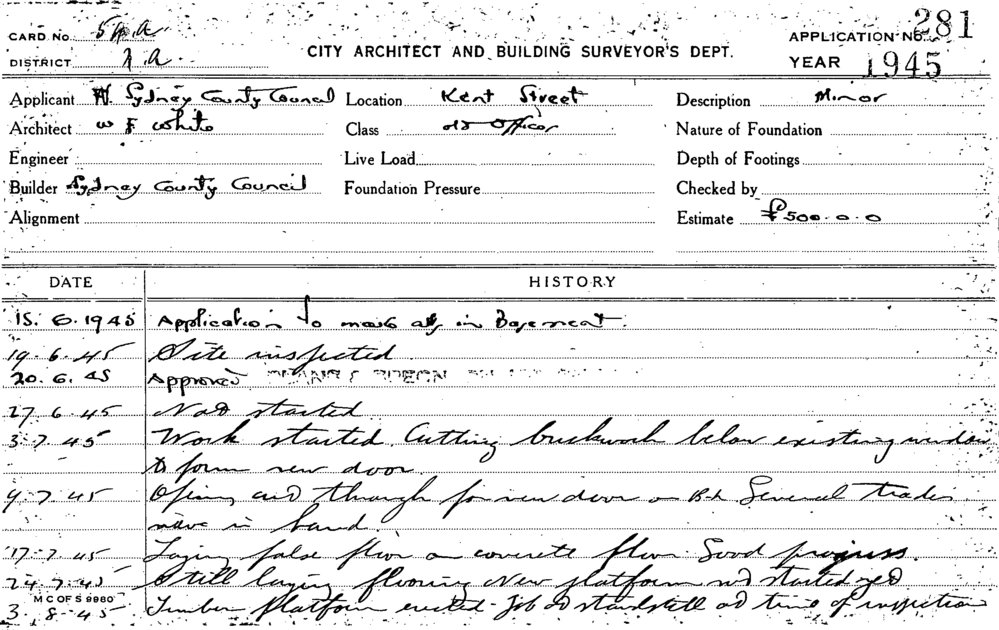 CARD No.
DISTRICT
CITY ARCHITECT AND BUILDING SURVEYOR'S DEPT.
APPLICATION No. 281
YEAR 1945
Applicant Sydney County Council Location Kent Street Description Minor
Architect W F White Class Nature of Foundation
Engineer Live Load Depth of Footings
Builder Sydney County Council Foundation Pressure Checked by
Alignment Estimate £500.0.0
DATE HISTORY
15.6.1945 Application to make in Basement.
19.6.45 Site inspected
20.6.45 Approved
27.6.45 Not started
3.7.45 Work started. Cutting brickwork below existing window
to form new door.
9.7.45 Opening through for new door on Several trades
in hand.
17.7.45 Laying false floor on concrete floor. Good progress.
24.7.45 Still laying flooring New platform not started yet
M C OF S 9980
3.8.45 Timber platform erected. Job at standstill at time of inspection